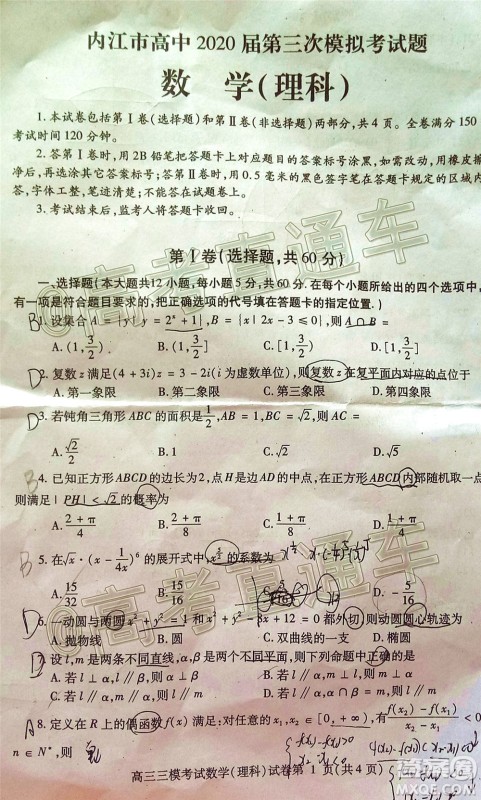 内江市高中2020届第三次模拟考试题
数 学(理科)
1.本试卷包括第Ⅰ卷(选择题)和第Ⅱ卷(非选择题)两部分,共4页。全卷满分150
考试时间120分钟。
2.答第Ⅰ卷时,用2B铅笔把答题卡上对应题目的答案标号涂黑,如需改动,用橡皮擦
净后,再选涂其它答案标号;答第Ⅱ卷时,用0.5毫米的黑色签字笔在答题卡规定的区域内
答,字体工整,笔迹清楚;不能答在试题卷上。
3.考试结束后,监考人将答题卡收回。
第Ⅰ卷(选择题,共60分)
一、选择题(本大题共12小题,每小题5分,共60分.在每个小题所给出的四个选项中,
有一项是符合题目要求的,把正确选项的代号填在答题卡的指定位置.)
B 1.设集合A={y|y=2^x+1},B={x|2x-3≤0},则A∩B=
A.(1,3/2) B.(1,3/2] C.[1,3/2) D.[1,3/2]
D 2.复数z满足(4+3i)z=3-2i(i为虚数单位),则复数z在复平面内对应的点位于
A.第一象限 B.第二象限 C.第三象限 D.第四象限
D 3.若钝角三角形ABC的面积是1/2,AB=1,BC=√2,则AC=
A.√2/2 B.1 C.√2 D.√5
B 4.已知正方形ABCD的边长为2,点H是边AD的中点,在正方形ABCD内部随机取一点
则满足|PH|<√2的概率为
A.(2+π)/4 B.(2+π)/8 C.(1+π)/4 D.(1+π)/8
B 5.在√x·(x-1/(4x))^6的展开式中,x^(5/2)的系数为
A.15/32 B.15/16 D.-5/16
D 6.一动圆与两圆x²+y²=1和x²+y²-8x+12=0都外切,则动圆圆心轨迹为
A.抛物线 B.圆 C.双曲线的一支 D.椭圆
D 7.设l,m是两条不同直线,α,β是两个不同平面,则下列命题中正确的是
A.若l⊥α,l⊥β,则α⊥β B.若l∥α,l∥β,则α∥β
C.若l∥m,l∥α,则m∥α D.若l∥α,α∩β=m,则l∥m
A 8.定义在R上的偶函数f(x)满足:对任意的x₁,x₂∈[0,+∞),有(f(x₂)-f(x₁))/(x₂-x₁)<0
n∈N*,则
高三三模考试数学(理科)试卷第 1 页(共4页)
@高考直通车
@高考直通车